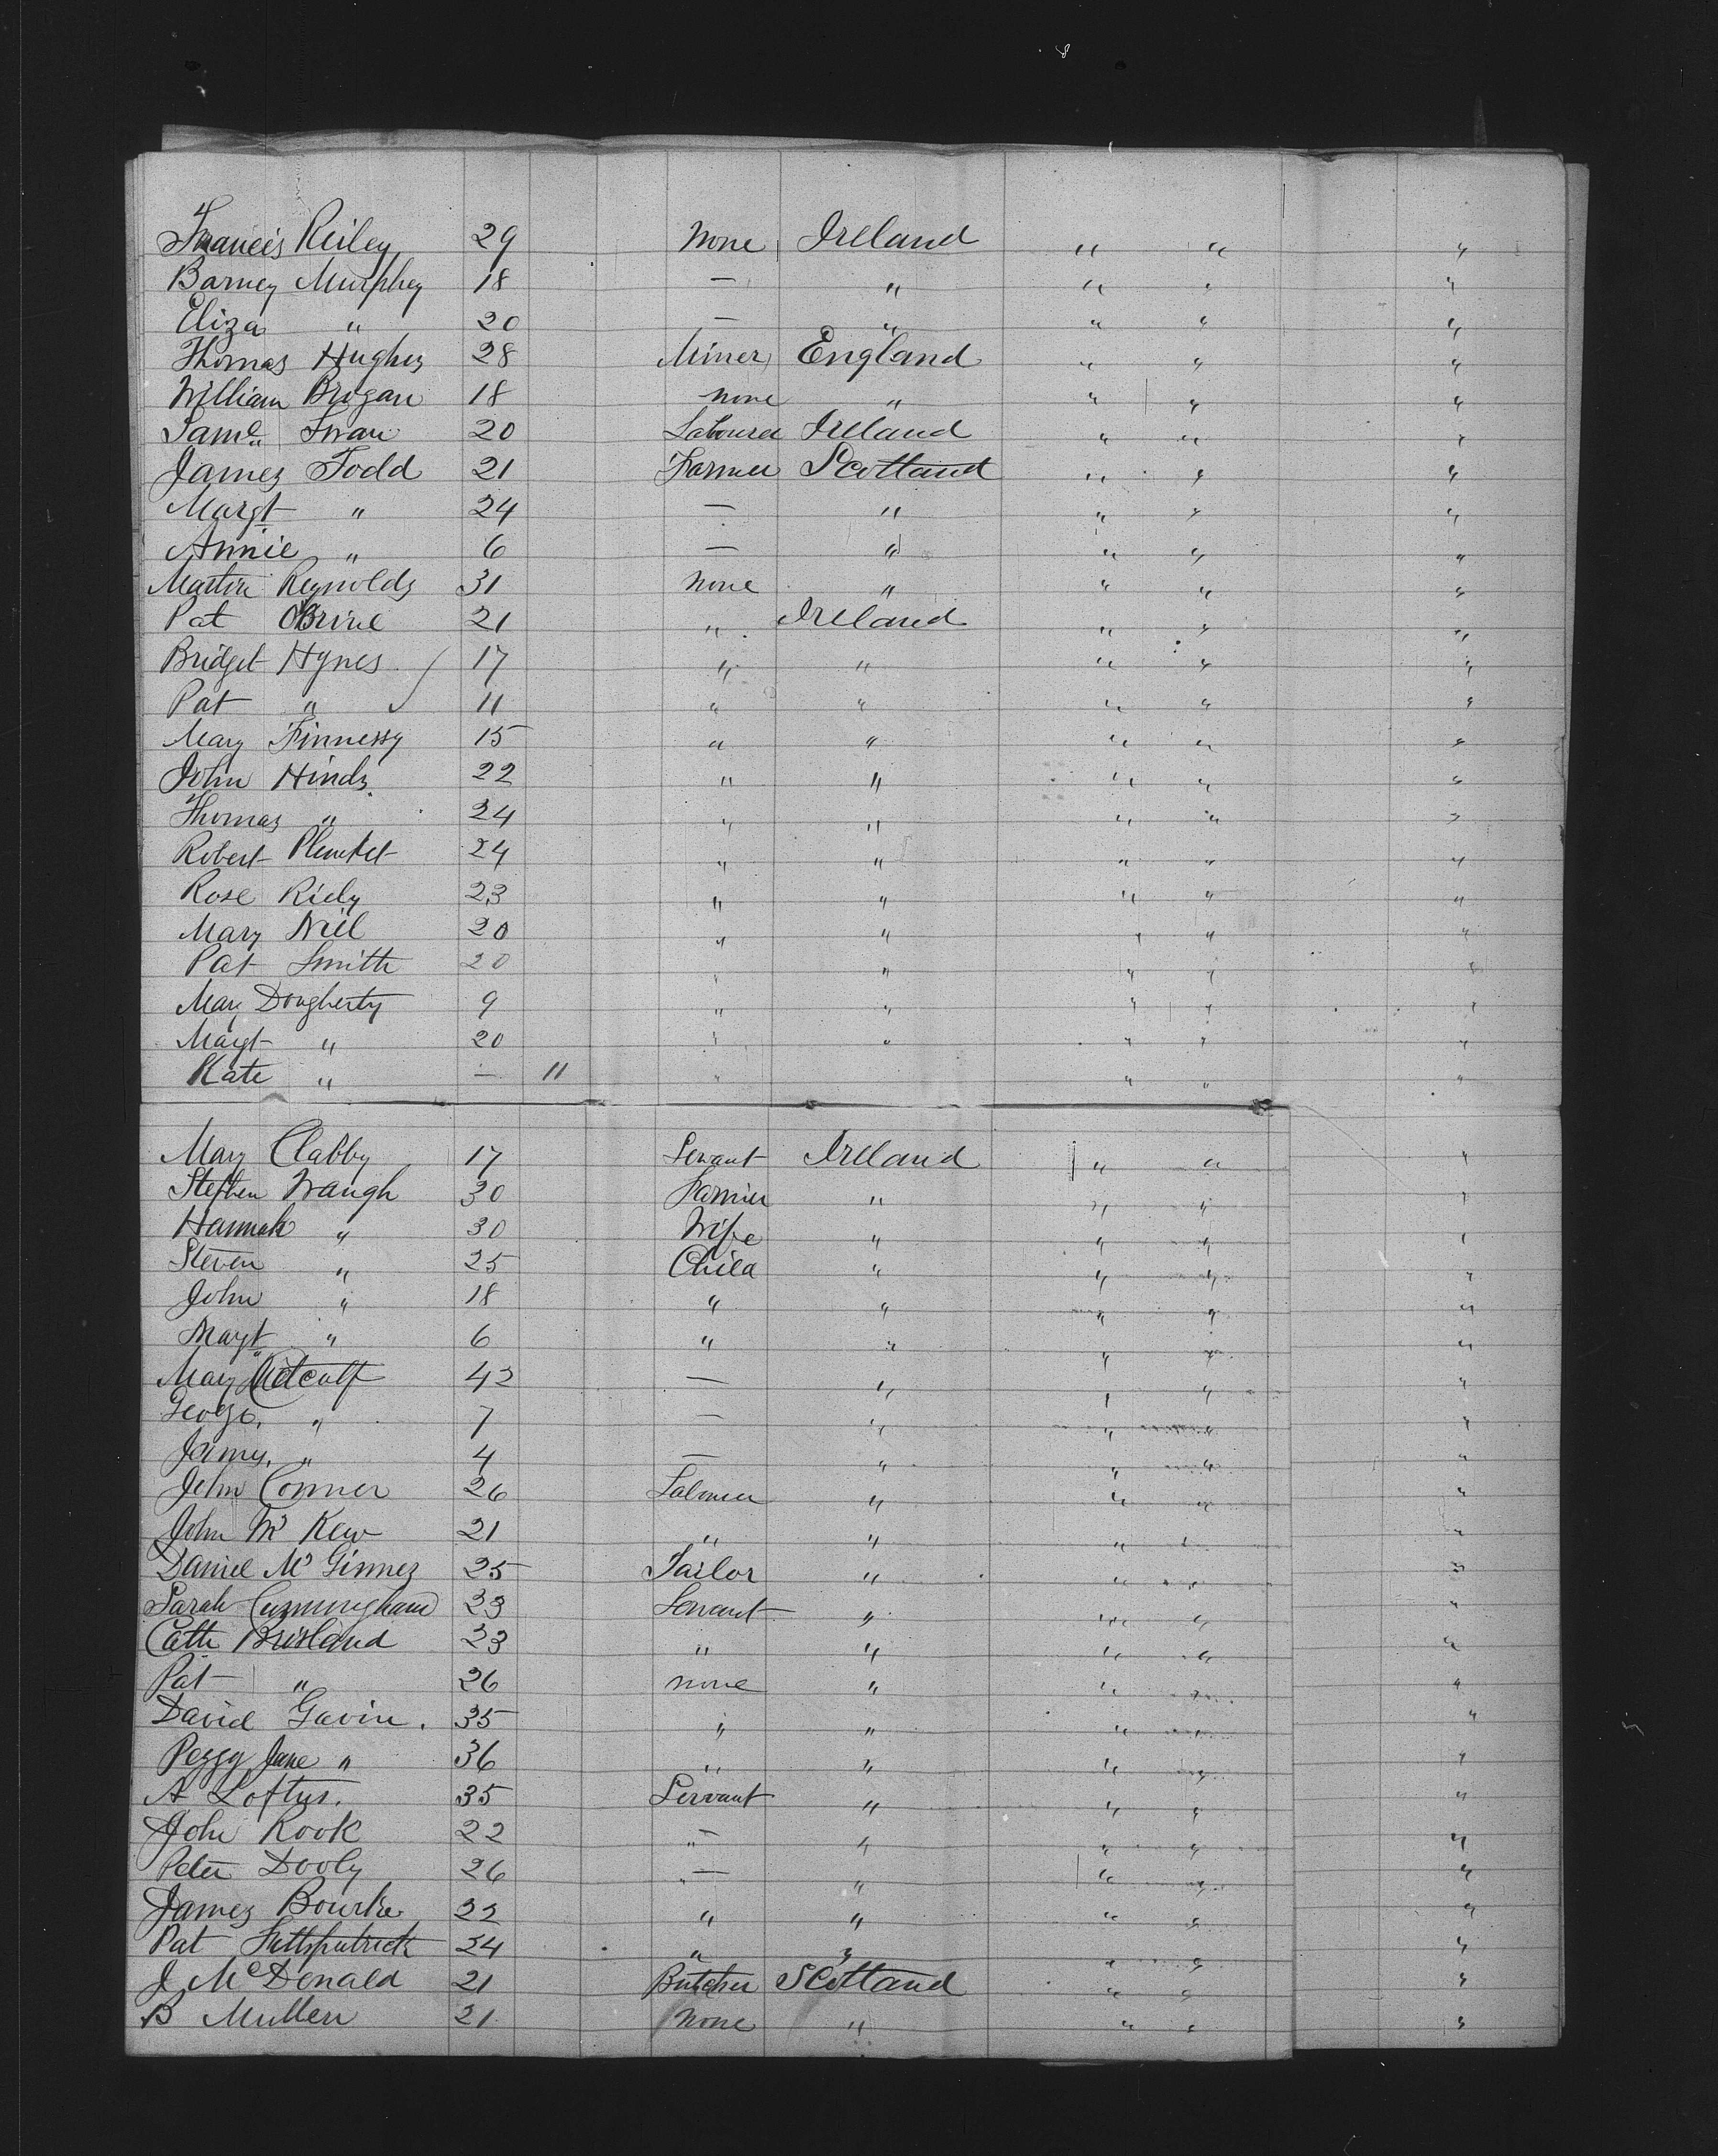 Francis Reiley 29 None Ireland " " "
Barney Murphey 18 — " " " "
Eliza " 20 — " " " "
Thomas Hughes 28 Miner England " " "
William Brogan 18 none " " " "
Saml Swan 20 Labourer Ireland " " "
James Todd 21 Farmer Scotland " " "
Margt " 24 — " " " "
Annie " 6 — " " " "
Martin Reynolds 31 none " " " "
Pat OBrine 21 " Ireland " " "
Bridget Hynes 17 " " " " "
Pat " 11 " " " " "
Mary Finnessy 15 " " " " "
John Hinds 22 " " " " "
Thomas " 24 " " " " "
Robert Plunket 24 " " " " "
Rose Riely 23 " " " " "
Mary Niel 20 " " " " "
Pat Smith 20 " " " " "
Mary Dougherty 9 " " " " "
Margt " 20 " " " " "
Kate " — 11 " " " "
Mary Clabby 17 Servant Ireland " " "
Stephen Waugh 30 Farmer " " " "
Hannah " 30 Wife " " " "
Steven " 25 Child " " " "
John " 18 " " " " "
Margt " 6 " " " " "
Mary Metcalf 42 — " " " "
George " 7 — " " " "
James " 4 — " " " "
John Conner 26 Labourer " " " "
John Mc Kew 21 " " " " "
Daniel Mc Ginnes 25 Tailor " " " "
Sarah Cunningham 23 Servant " " " "
Cath Brisland 23 " " " " "
Pat " 26 none " " " "
David Gavin. 35 " " " " "
Peggy Jane " 36 " " " " "
A Loftus. 35 Servant " " " "
John Rook 22 "— " " " "
Peter Dooly 26 "— " " " "
James Bourke 22 " " " " "
Pat Fittspatrick 24 " " " " "
J McDonald 21 Butcher Scotland " " "
B Mullen 21 none " " " "